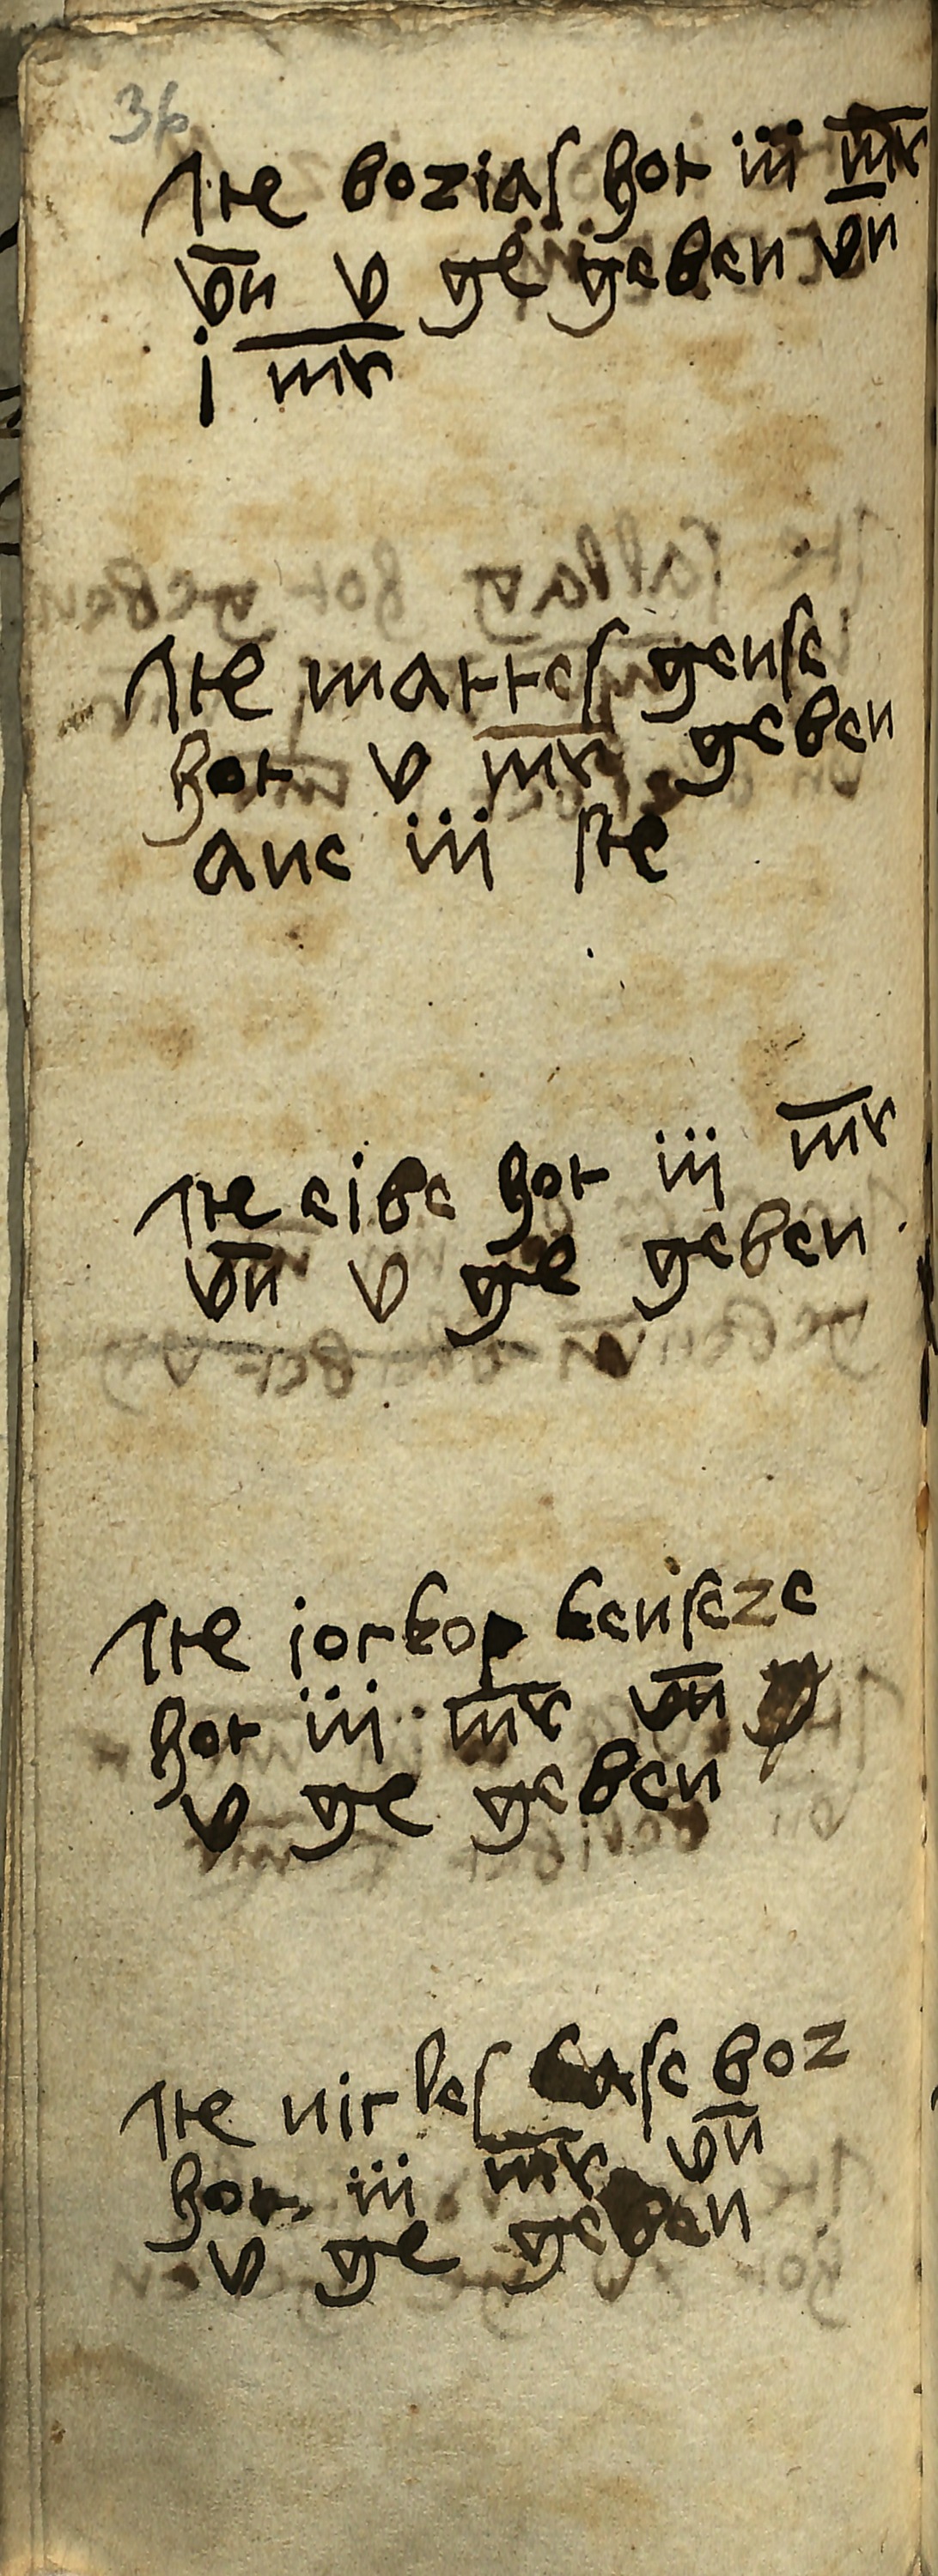 36
Ite boziaſ hot iii m̅r
v̅n v ge geben vn
i m̅r
Ite matteſ genſe
hot v m̅r geben
ane iii ſte
Ite eibe hot iii m̅r
v̅n v ge geben
Ite iorkop kenſeze
hot iii m̅r v̅n
v ge geben
Ite nirleſ kaſe boz
hot iii m̅r v̅n
v ge geben